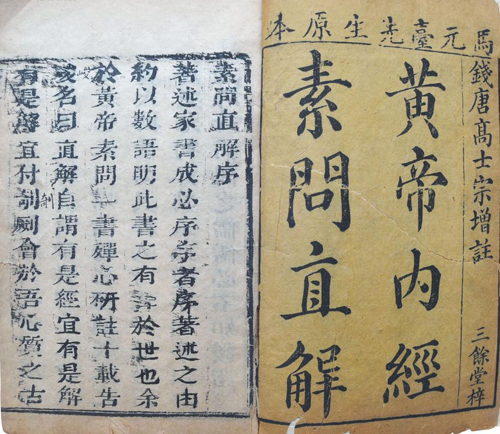 馬元臺先生原本
錢唐髙士宗增註
黃帝內經
素問直解
三餘堂梓
素問直解序
著述家書成必序序者序著述之由
約以數語明此書之有於世也余
於黃帝素問一書殫心研註十載告
成名曰直解自謂有是經宜有是解
有是解宜付剞劂會於吾心質之古